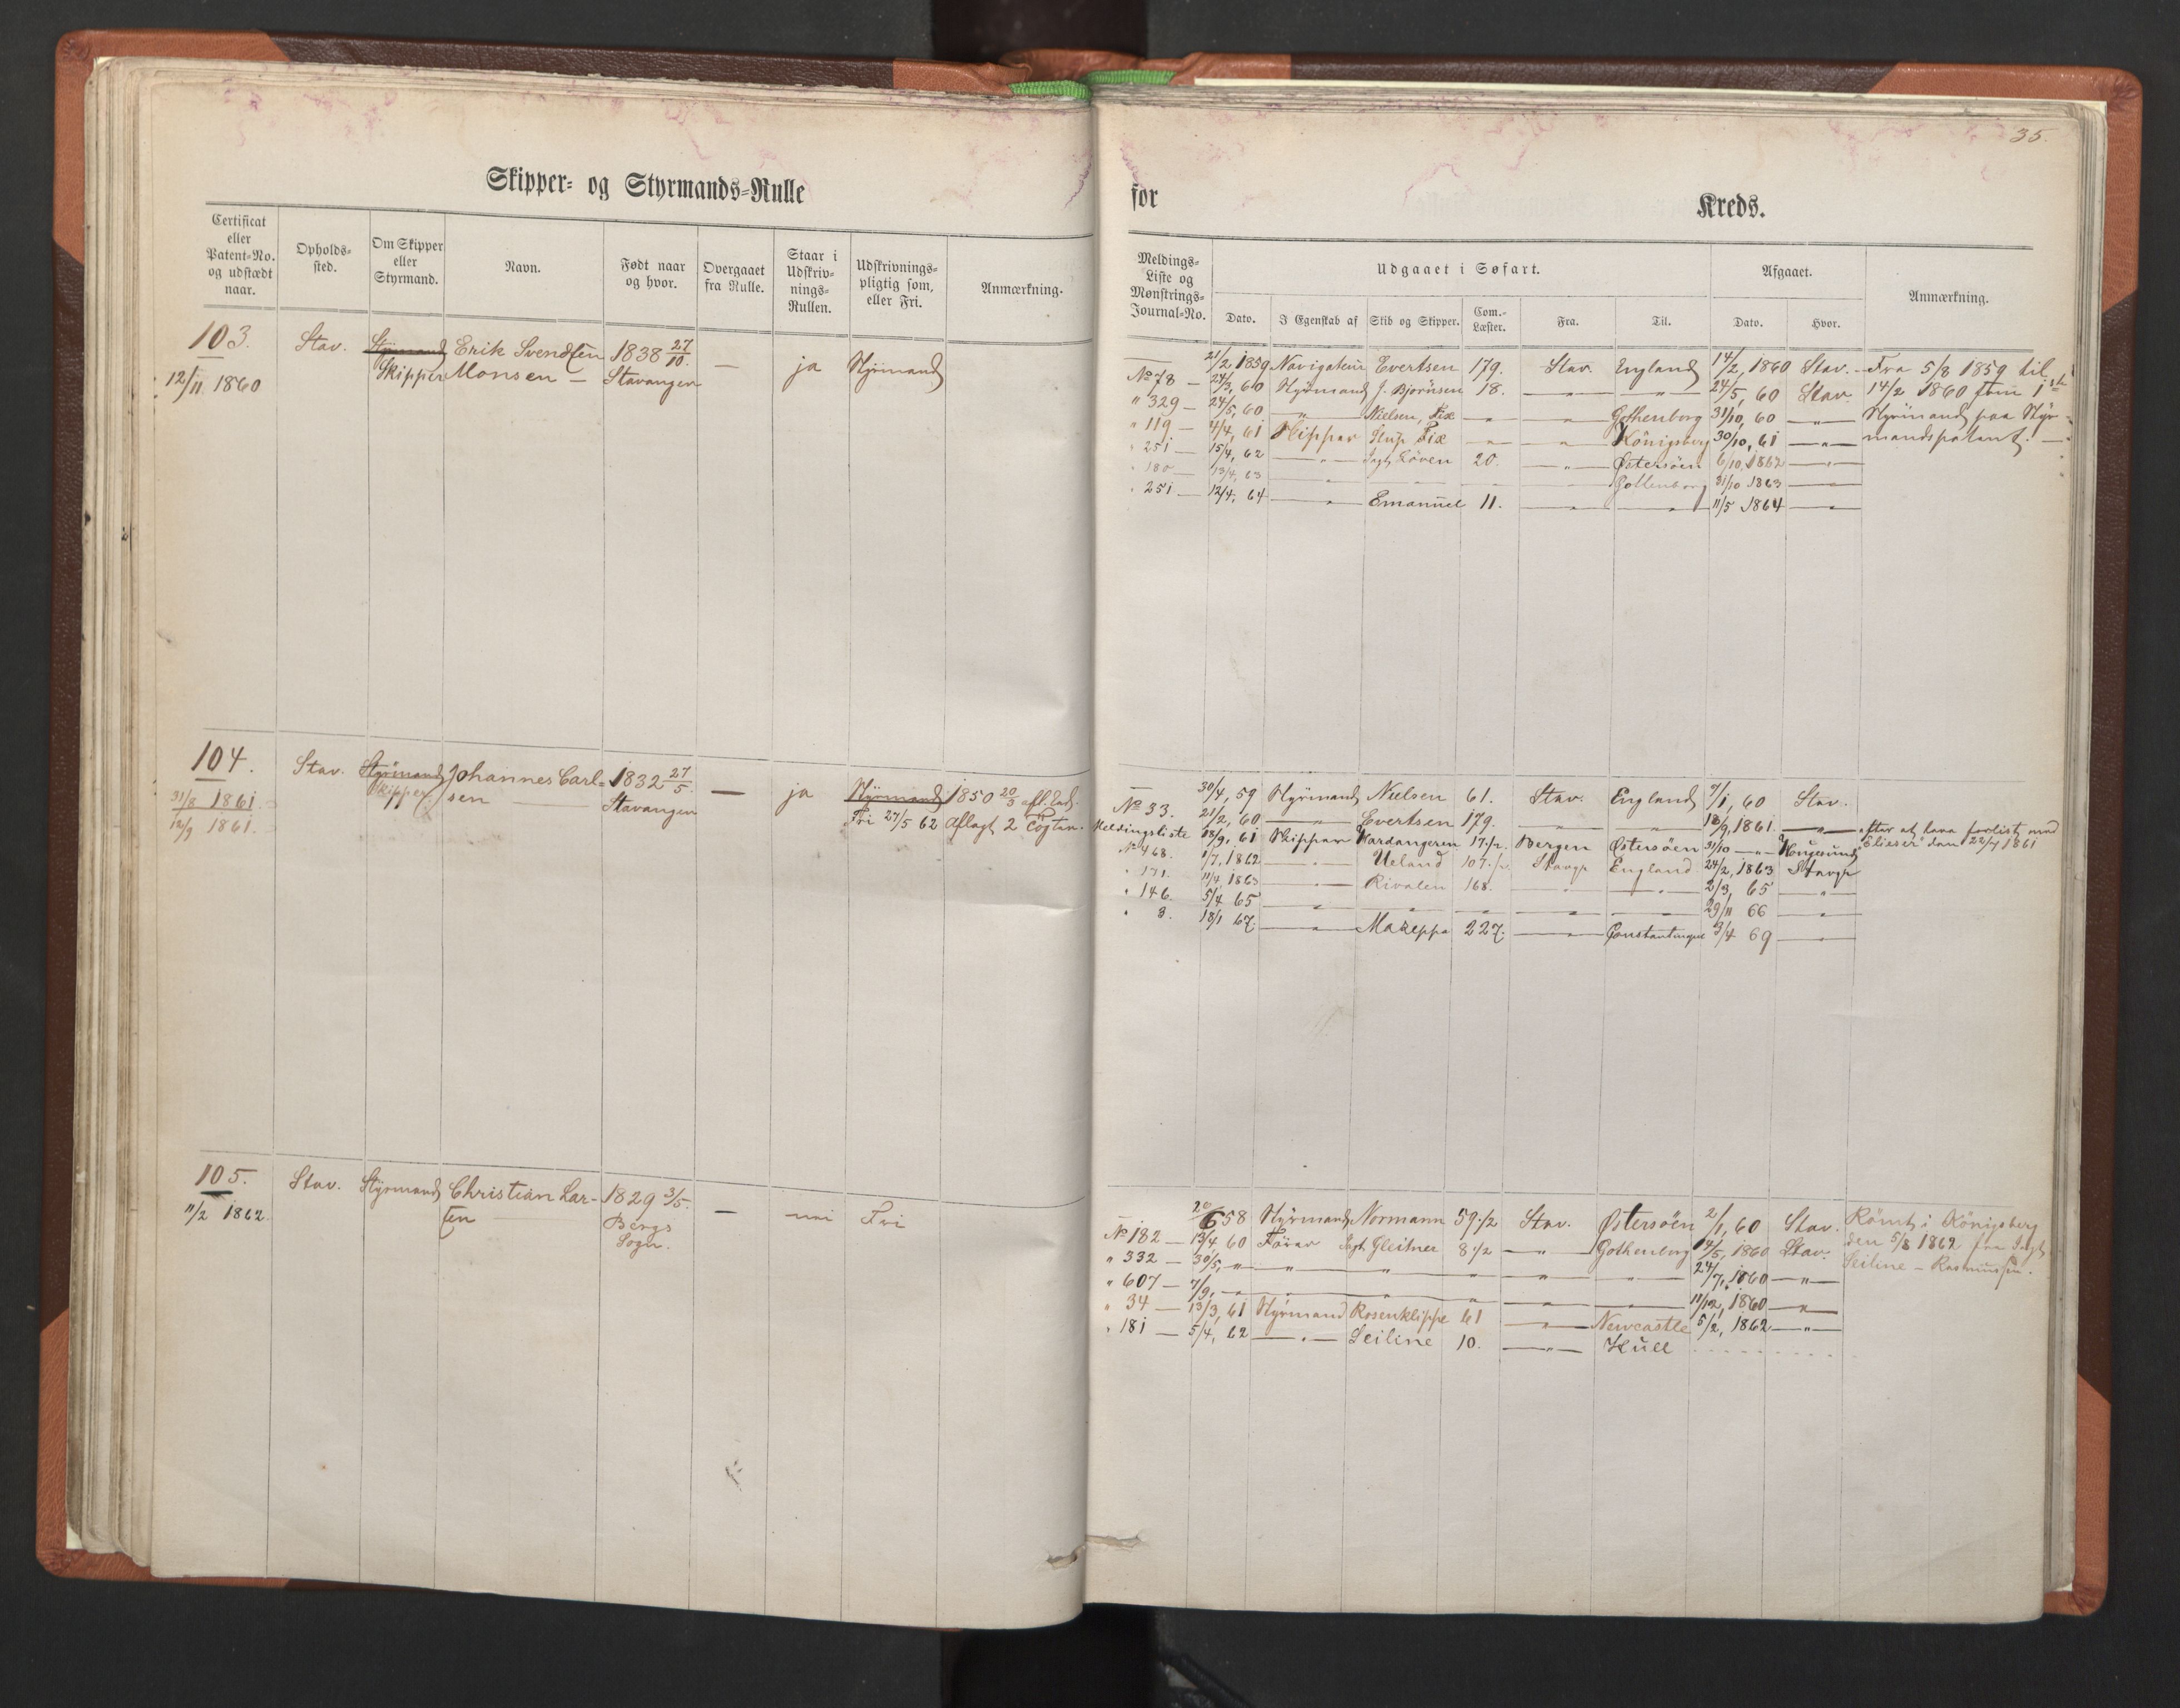 Skipper- og Styrmands-Rulle
Certificat eller Patent-No. og udstædt naar.
Opholds-sted.
Om Skipper eller Styrmand.
Navn.
Født naar og hvor.
Overgaaet fra Rulle.
Staar i Udskriv-nings-Rullen.
Udskrivnings-pligtig som, eller Fri.
Anmærkning.
103. Stav. Styrmand Erik Svendsen 1838 27/10. — ja Styrmand
12/11 1860 Skipper Monsen — Stavanger
104. Stav. Styrmand Johannes Carl= 1832 27/5 — ja Styrmand 1850 20/5
31/8 1861. Skipper. sen Stavanger Fri 27/5 62 aflagt 2 Tögter.
12/9 1861.
105. Stav. Styrmand Christian Lar- 1829 3/5. — nei Fri
11/2 1862. sen Bergs
Sogn.
35.
for Kreds.
Meldings-Liste og Mønstrings-Journal-No.
Udgaaet i Søfart.
Dato. I Egenskab af Skib og Skipper. Com.-Læster. Fra. Til.
Afgaaet.
Dato. Hvor.
Anmærkning.
— 21/2 1859 Navigateur Evertsen 179. Stav. England 14/2, 1860 Stav. Fra 5/8 1859 til
No 78 — 24/3, 60 Styrmand J. Bjørnsen 18. — " — — " — 24/5, 60 Stav. 14/2 1860 som 1ste
" 329 — 24/5, 60 — " — Nielsen, Fix — " — " Gothenborg 31/10, 60 — " — Styrmand paa Styr-
" 119 — 4/4, 61 Skipper Slup Fix — " — " Königsberg 30/10, 61 — " — mandspatent. —
" 251 — 15/4, 62 — " — Jagt Löven 20. — " — Östersöen 6/10, 1862 — " —
" 180 — 13/4, 63 — " — — " — — — " — Gottenborg 31/10 1863 — " —
" 251 — 12/4, 64 — " — Emanuel 11. — " — — " — 11/5 1864 — " —
— 30/4, 59 Styrmand Nielsen 61. Stav. England 7/1, 60 Stav.
No 33. 21/2, 60 — " — Evertsen 179. — " — — " — 18/9, 1861. — " — efter at have forlist med
Meldingsliste 18/9, 61 Skipper Hardangeren 17 1/2. Bergen Östersöen 31/10 — " — Haugesund "Elieser" den 22/7 1861
No 468. 1/7, 1862 — " — Ueland 107 1/2 Stavgr England 24/2, 1863 Stavgr
" 171. 11/4 1863 — " — Rivalen 168. — " — — " — 2/3, 65 "
" 146. 5/4 65 — " — — " — — " — — " — — " — 29/11 66 — " —
" 8. 18/1 67. — " — Mazeppa 227. — " — Constantinopel 3/4 69 — " —
20/6 58 Styrmand Normann 59 1/2 Stav. Östersöen 2/1, 60 Stav. Römt i Königsberg
No 182 — 13/4 60 Fører Jagt Gleitner 8 1/2 — " — Gothenborg 14/5, 1860 Stav. den 5/8 1862 fra Jagt
" 332 — 30/5, " — " — — " — " — " — — " — 24/7, 1860 — " — Seiline — Rasmussen.
" 607 — 7/9, — " — — " — — " — " — " — — " — 11/12, 1860 — " —
" 34 — 13/3, 61 Styrmand Rosenklippe 61 — " — Newcastle 5/2, 1862 — " —
" 181 — 5/4, 62 — " — Seiline 10. — " — Hull